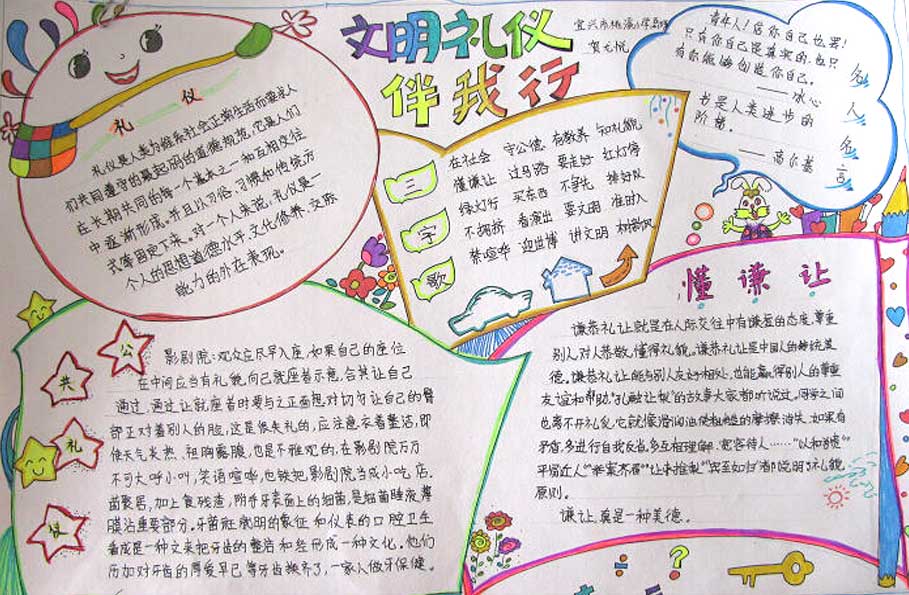 文明礼仪
伴我行
宜兴市桃溪小学
贺元悦
礼仪
礼仪是人类为维系社会正常生活而需要人
们共同遵守的最起码的道德规范,它是人们
在长期共同的每一个基本之一和互相交往
中逐渐形成,并且以习俗、习惯和传统方
式等固定下来。对一个人来说,礼仪是一
个人的思想道德水平、文化修养、交际
能力的外在表现。
三字歌
在社会 守公德 有教养 知礼貌
懂谦让 过马路 要走好 红灯停
绿灯行 买东西 不争先 排好队
不拥挤 看演出 要文明 准时入
禁喧哗 迎世博 讲文明 树新风
名人名言
青年人!信你自己也罢!
只有你自己是真实的,也只
有你能够创造你自己。
——冰心
书是人类进步的
阶梯。
——高尔基
公共礼仪
影剧院:观众应尽早入座,如果自己的座位
在中间应当有礼貌,向已就座者示意,会其让自己
通过,通过让就座者时要与之正面想对切勿让自己的臀
部正对着别人的脸,这是很失礼的,应注意衣着整洁,即
使天气炎热,袒胸露腹,也是不雅观的,在影剧院万万
不可大呼小叫,笑语喧哗,也铁把影剧院当成小吃店。
菌繁居,加上食残渣,附于牙表面上的细菌,是细菌唾液薄
膜沾重要部分。牙菌斑
文明的象征和仪表的口腔卫生
看成是一种文来把牙齿的整洁和
形成一种文化。他们
历加对牙齿的厚爱早已等牙齿换齐了,一家人做牙保健。
懂谦让
谦恭礼让就是在人际交往中有谦虚的态度,尊重
别人,对人恭敬,懂得礼貌。谦恭礼让是中国人的传统美
德。谦恭礼让能与别人友好相处,也能赢得别人的尊重
友谊和帮助。“孔融让梨”的故事大家都听说过。同学之间
也离不开礼貌,它就像润滑油使粗糙的摩擦消失,如果有
矛盾,多进行自我反省,多互相理解、宽容待人……“以和为贵”
平易近人”“举案齐眉”“让枣推梨”“宾至如归”都说明了礼貌
原则。
谦让,真是一种美德。